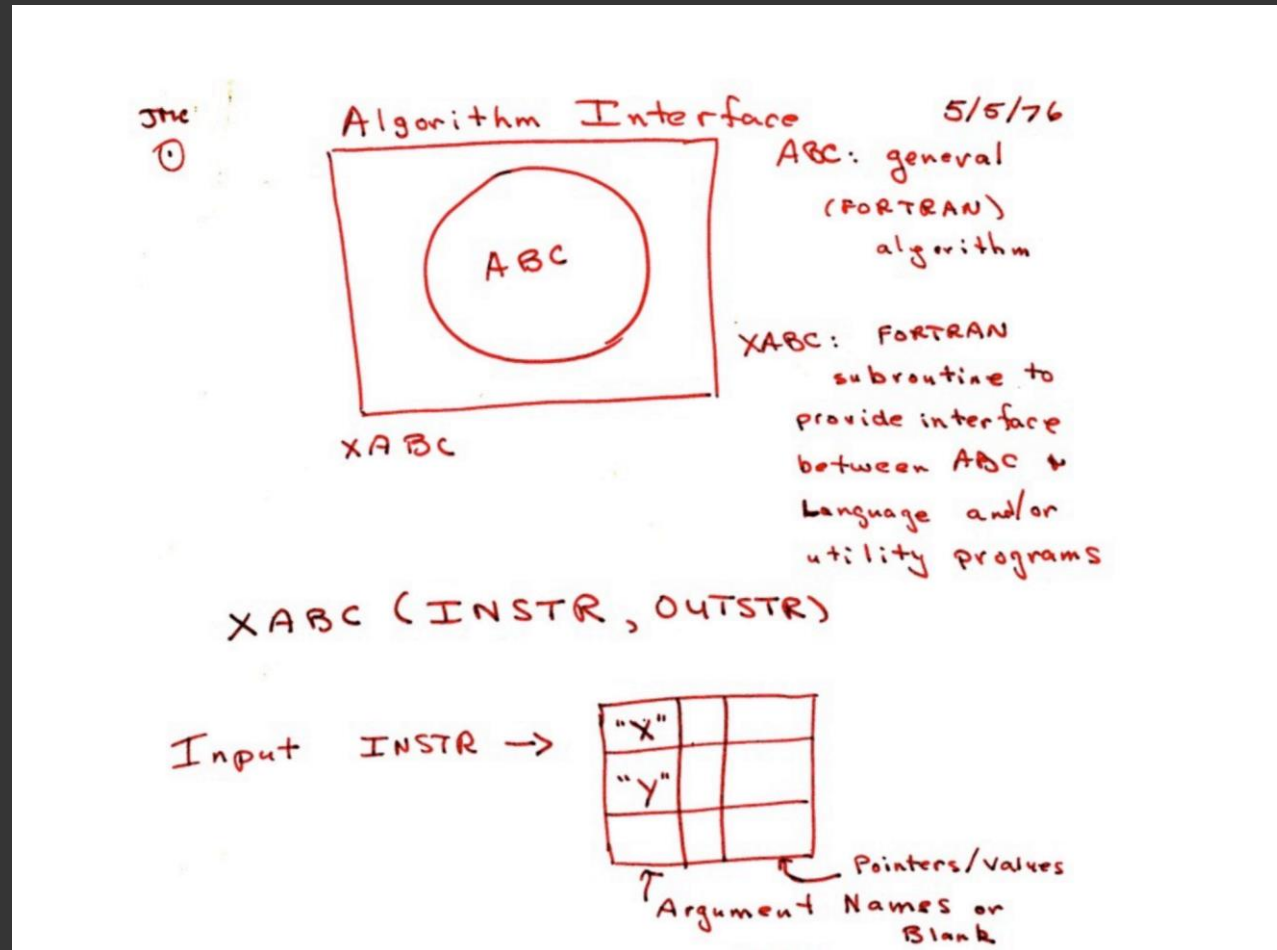 JMC:
Algorithm Interface
5/5/76
1
ABC: general
(FORTRAN)
algorithm
ABC
XABC: FORTRAN
subroutine to
provide interface
between ABC &
Language and/or
utility programs
XABC
XABC (INSTR, OUTSTR)
Input INSTR →
"X"
"Y"
Pointers/Values
Argument Names or
Blank